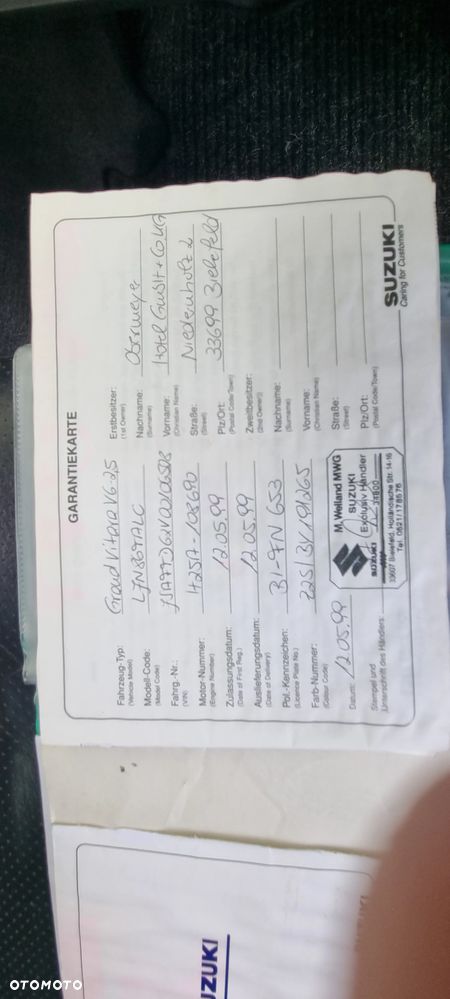 GARANTIEKARTE
Fahrzeug-Typ: Grand Vitara V6 2,5
(Vehicle Model)
Modell-Code:
(Model Code)
Fahrg.-Nr.:
(VIN)
Motor-Nummer:
(Engine Number)
Zulassungsdatum: 12.05.99
(Date of First Reg.)
Auslieferungsdatum: 12.05.99
(Date of Delivery)
Pol.-Kennzeichen: BI-FN 653
(Licence Plate No.)
Farb-Nummer:
(Colour Code)
Datum: 12.05.99
Stempel und
Unterschrift des Händlers:
M. Welland MWG
SUZUKI
Exclusiv Händler
SUZUKI
33607 Bielefeld, Holländische Str. 14-16
Tel. 0521/178576
Erstbesitzer:
(1st Owner)
Nachname:
(Surname)
Vorname: Hotel GmbH + Co KG
(Christian Name)
Straße: Niedernholz 2
(Street)
Plz/Ort: 33699 Bielefeld
(Postal Code/Town)
Zweitbesitzer:
(2nd Owner)
Nachname:
(Surname)
Vorname:
(Christian Name)
Straße:
(Street)
Plz/Ort:
(Postal Code/Town)
SUZUKI
Caring for Customers
UZUKI
UZUKI
OTOMOTO